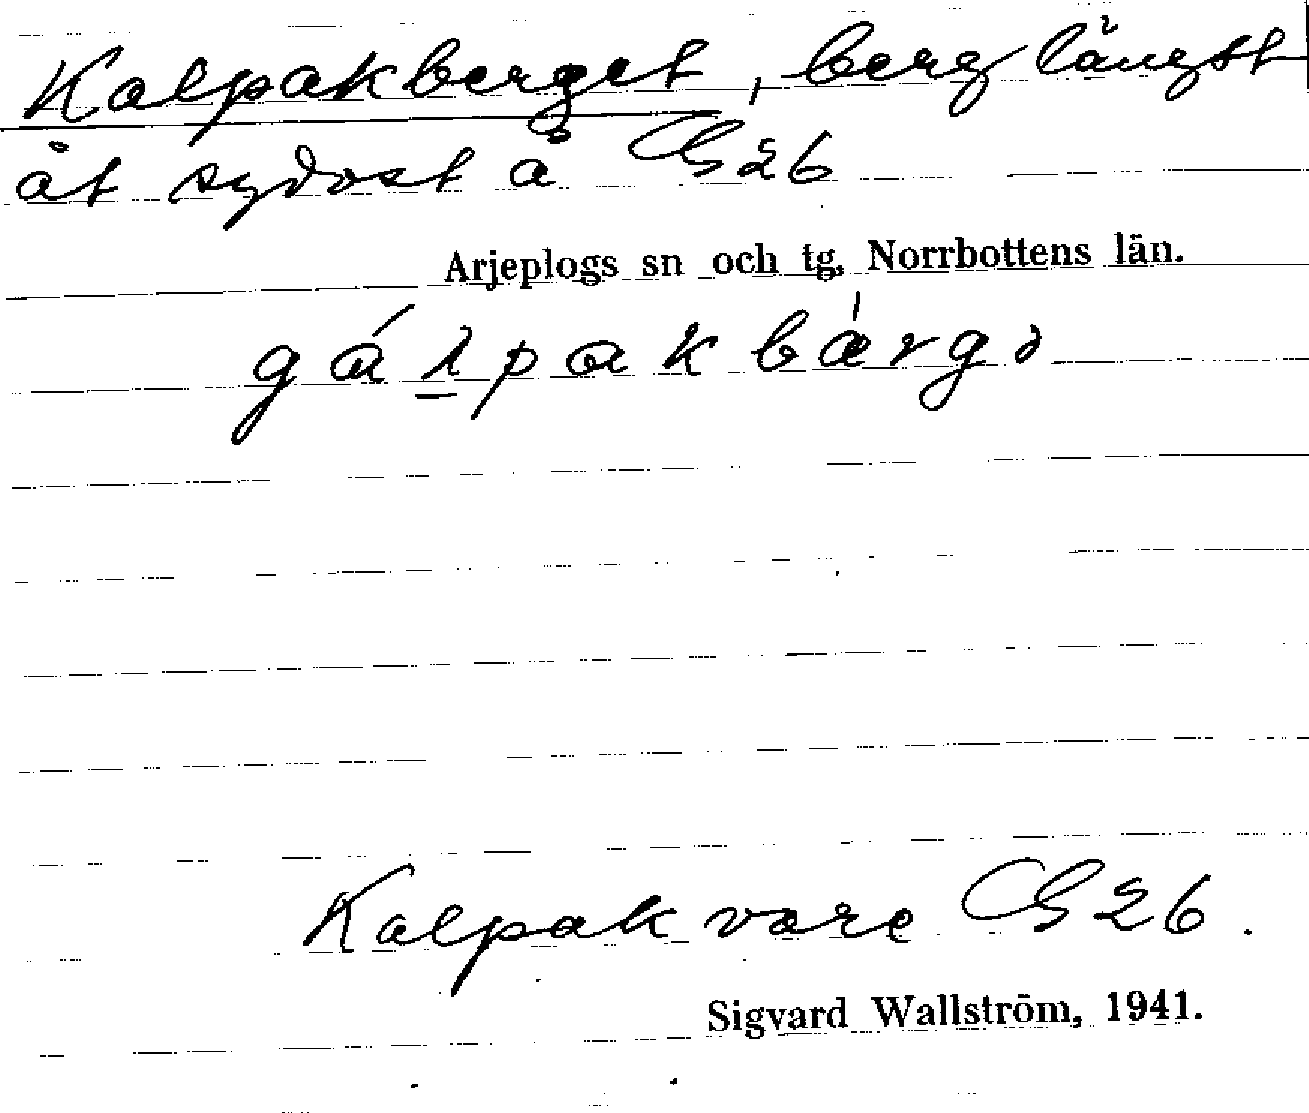 Kalpakberget, berg längst
åt sydost å GS 26
Arjeplogs sn och tg, Norrbottens län.
gálpakbærgə
Kalpakvare GS 26.
Sigvard Wallström, 1941.